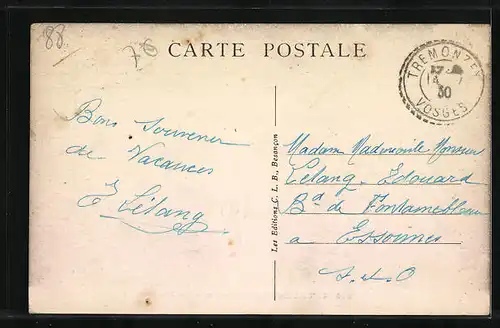 88
76
CARTE POSTALE
TREMONZEY
30
VOSGES
Bons souvenir
de Vacances
E Létang
Les Editions C. L. B., Besançon
Madame Mademoiselle Monsieur
Letang Edouard
Bd de Fontainebleau
a Essonnes
S.et.O